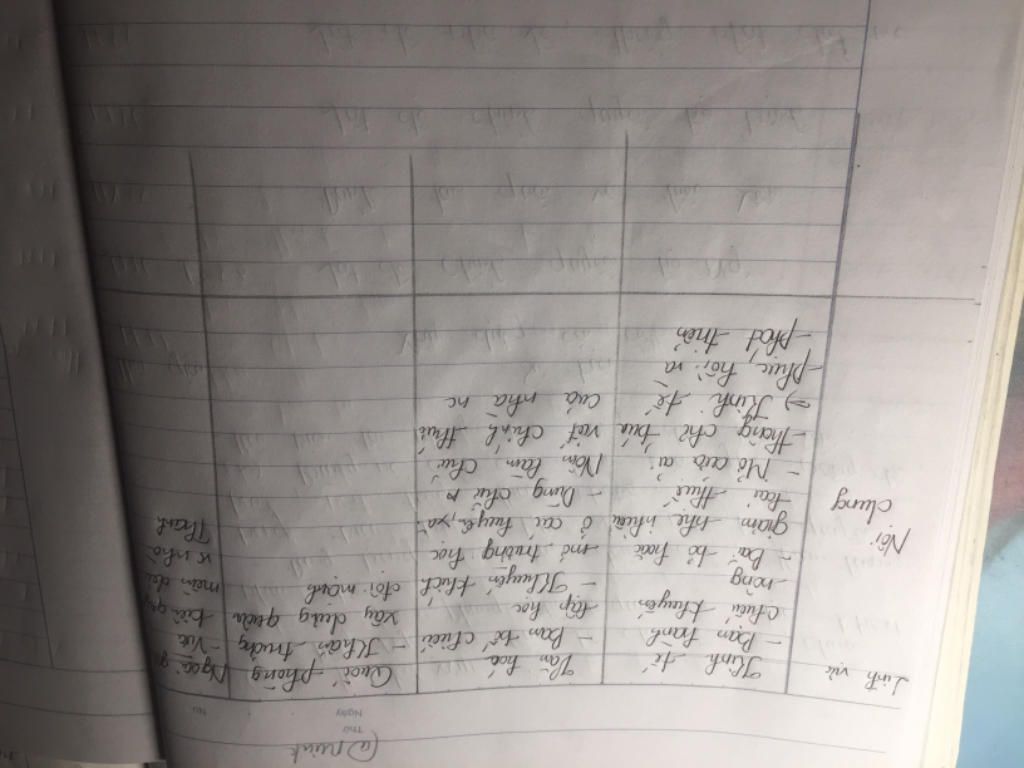 Thứ
Ngày
No.
Lĩnh vực
Nội
dung
Kinh tế
- Ban hành
chiếu khuyến
nông
- Bãi bỏ hoặc
giảm nhẹ nhiều
loại thuế
- Mở cửa ải
- thông chợ búa
=> Kinh tế
- phục hồi và
- phát triển
Văn hoá
- Ban bố chiếu
lập học
- Khuyến khích
mở trường học
ở các huyện, xã
- Dùng chữ
Nôm làm chữ
viết chính thức
của nhà nc
Quốc phòng
- Khẩn trương
xây dựng quân
đội mạnh
Ngoại g
- Vừa
mềm dẻo
vs nhà
Thanh